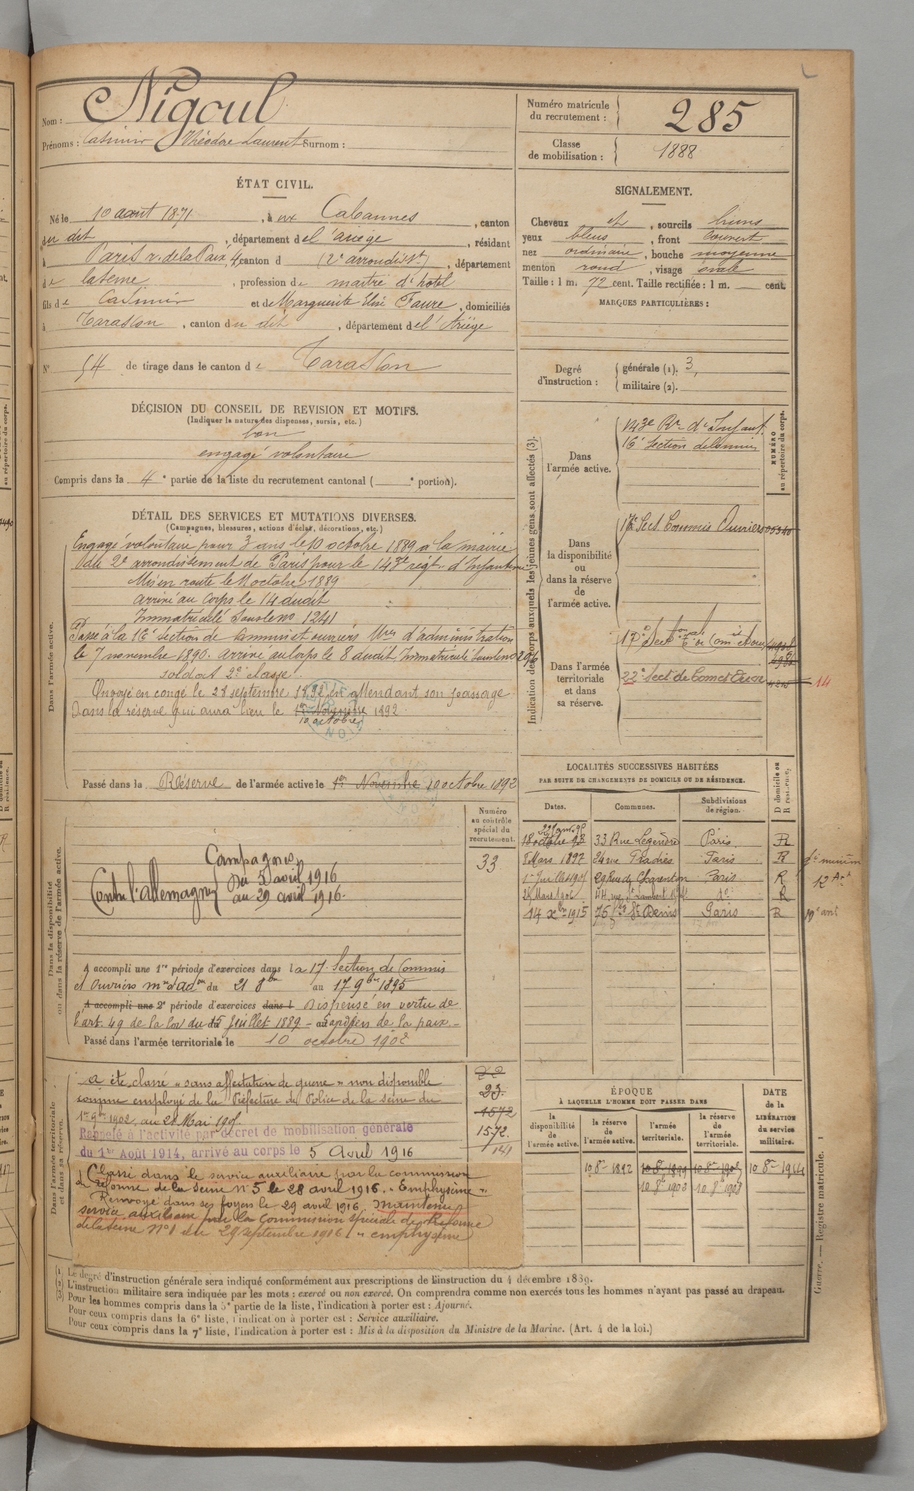 Nom : Nigoul
Prénoms : Casimir Théodore Laurent Surnom :
Numéro matricule du recrutement : 285
Classe de mobilisation : 1888
ÉTAT CIVIL.
Né le 10 août 1871, à ux Cabannes, canton
du dit, département de l'ariège, résidant
à Paris r. de la Paix 4, canton d (2e arrondisst), département
de la Seine, profession de maître d'hôtel
fils de Casimir et de Marguerite Faure, domiciliés
à Tarascon, canton du dit, département de l'Ariège
N° 54 de tirage dans le canton de Tarascon
SIGNALEMENT.
Cheveux et, sourcils bruns
yeux bleus, front couvert
nez ordinaire, bouche moyenne
menton rond, visage ovale
Taille : 1 m. 72 cent. Taille rectifiée : 1 m. cent.
MARQUES PARTICULIÈRES :
Degré d'instruction : générale (1). 3,
militaire (2).
DÉCISION DU CONSEIL DE REVISION ET MOTIFS.
(Indiquer la nature des dispenses, sursis, etc.)
bon
engagé volontaire
Compris dans la 4e partie de la liste du recrutement cantonal ( e portion).
DÉTAIL DES SERVICES ET MUTATIONS DIVERSES.
(Campagnes, blessures, actions d'éclat, décorations, etc.)
Dans l'armée active.
Engagé volontaire pour 3 ans le 10 octobre 1889 à la mairie
du 2e arrondissement de Paris pour le 143e régt d'Infanterie
Mis en route le 11 octobre 1889
arrivé au Corps le 14 dudit
Immatriculé sous le no 1241
Passé à la 16e Section de Commis et ouvriers Mres d'administration
le 7 novembre 1890. arrivé au corps le 8 dudit Immatriculé sous le no 296
soldat 2e classe
Envoyé en congé le 28 septembre 1892 en attendant son passage
dans la réserve qui aura lieu le 1er Novembre 1892
10 octobre
Passé dans la Réserve de l'armée active le 1er Novembre 10 octobre 1892
Indication des corps auxquels les jeunes gens sont affectés (3).
NUMÉRO au répertoire du corps.
Dans l'armée active.
143e Rt d'Infant.
16e Section de Commis
Dans la disponibilité ou dans la réserve de l'armée active.
17e Sect Commis Ouvriers 05340
Dans l'armée territoriale et dans sa réserve.
22e Sect de Comis 14
Dans la disponibilité ou dans la réserve de l'armée active.
Numéro au contrôle spécial du recrutement.
33
Campagnes
Contre l'allemagne Du 5 avril 1916
au 29 avril 1916.
A accompli une 1re période d'exercices dans la 17 Section de Commis
et Ouvriers mres d'adon du 21 8bre au 17 9bre 1895
A accompli une 2e période d'exercices dans l Dispensé en vertu de
l'art. 49 de la loi du 15 Juillet 1889
Passé dans l'armée territoriale le 10 octobre 1902
LOCALITÉS SUCCESSIVES HABITÉES
PAR SUITE DE CHANGEMENTS DE DOMICILE OU DE RÉSIDENCE.
Dates. Communes. Subdivisions de région. D domicile ou R résidence.
33 Rue Legendre Paris R
8 Mars 1897 24 rue Pradier Paris R
Paris R
R
14 Xbre 1915 St Denis Paris R
Dans l'armée territoriale et dans sa réserve.
a été classé « sans affectation de guerre » non disponible
comme employé de la Préfecture de Police de la Seine du
1er 9bre 1902 au 20 Mai 1908
23.
1572
1572.
141
Rappelé à l'activité par décret de mobilisation générale
du 1er Août 1914, arrivé au corps le 5 Avril 1916
Classé dans le service auxiliaire par la commission
de réforme de la Seine N° 5 le 28 avril 1916. « Emphysème ».
Renvoyé dans ses foyers le 29 avril 1916. Maintenu
service auxiliaire par la Commission spéciale de Réforme
de la Seine N° 1 du 29 septembre 1916 « emphysème »
ÉPOQUE
À LAQUELLE L'HOMME DOIT PASSER DANS
la disponibilité de l'armée active. la réserve de l'armée active. l'armée territoriale. la réserve de l'armée territoriale.
DATE de la LIBÉRATION du service militaire.
10 8bre 1892 10 8bre 1908 10 8bre 1914
(1) Le degré d'instruction générale sera indiqué conformément aux prescriptions de l'instruction du 4 décembre 1889.
(2) L'instruction militaire sera indiquée par les mots : exercé ou non exercé. On comprendra comme non exercés tous les hommes n'ayant pas passé au drapeau.
(3) Pour les hommes compris dans la 5e partie de la liste, l'indication à porter est : Ajourné.
Pour ceux compris dans la 6e liste, l'indication à porter est : Service auxiliaire.
Pour ceux compris dans la 7e liste, l'indication à porter est : Mis à la disposition du Ministre de la Marine. (Art. 4 de la loi.)
Guerre. — Registre matricule. 1